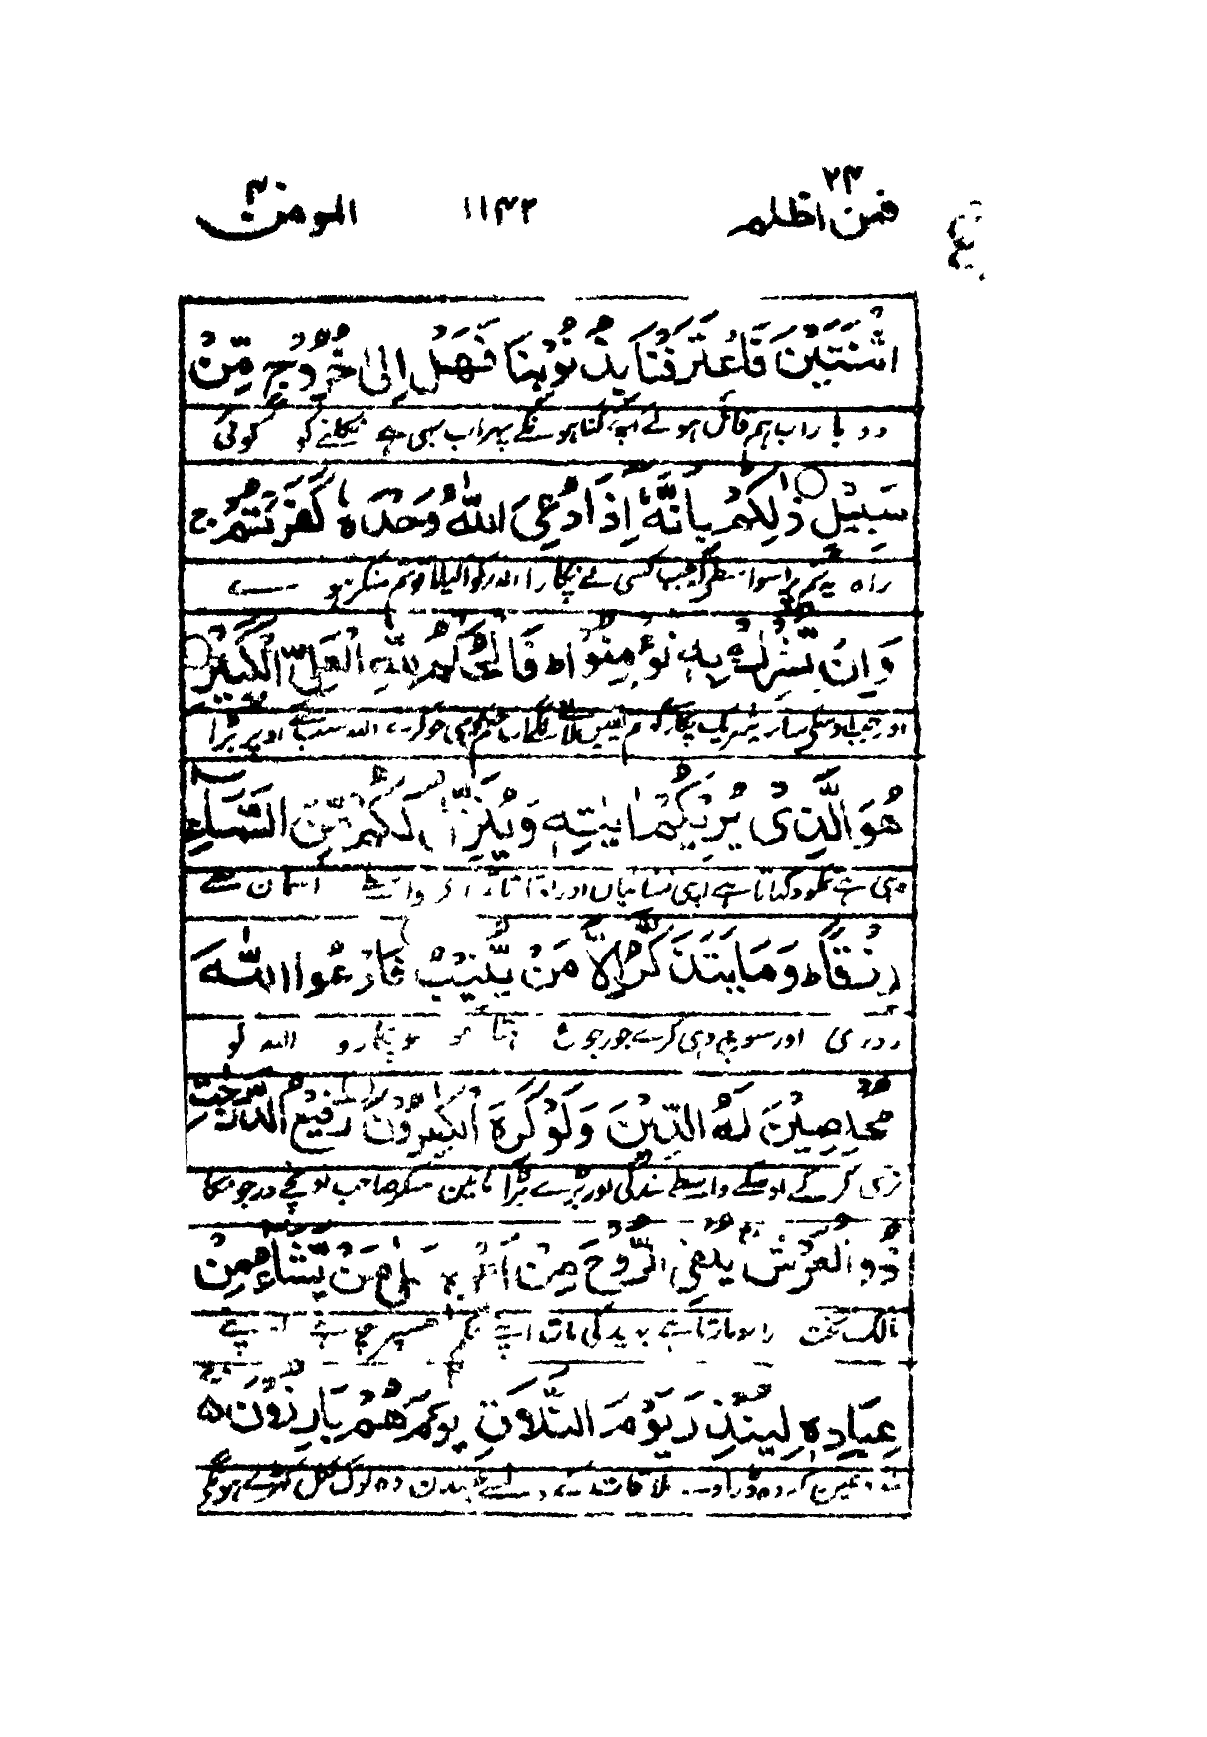 فمن اظلم ۲۴ ۱۱۴۲ المؤمن ۴۰
اثْنَتَيْنِ فَاعْتَرَفْنَا بِذُنُوْبِنَا فَهَلْ اِلٰى خُرُوْجٍ مِّنْ
دو بار اب ہم قائل ہوئے اپنے گناہونکے پہر اب بہی ہے نکلنے کو کوئی
سَبِيْلٍ ذٰلِكُمْ بِاَنَّهٗ اِذَا دُعِيَ اللّٰهُ وَحْدَهٗ كَفَرْتُمْ ج
راہ یہ تم پر اسواسطے کہ جب کسی نے پکارا اللہ کو اکیلا تو تم منکر ہوئے
وَاِنْ يُّشْرَكْ بِهٖ تُؤْمِنُوْا ط فَالْحُكْمُ لِلّٰهِ الْعَلِيِّ الْكَبِيْرِ
اور جب اوسکے ساتھ شریک پکارے تم یقین لانے لگے اب حکم وہی جو کرے اللہ سب سے اوپر بڑا
هُوَ الَّذِيْ يُرِيْكُمْ اٰيٰتِهٖ وَيُنَزِّلُ لَكُمْ مِّنَ السَّمَآءِ
وہی ہے تمکو دکہاتا ہے اپنی نشانیاں اور اوتارتا واسطے آسمان سے
رِزْقًا ط وَمَا يَتَذَكَّرُ اِلَّا مَنْ يُّنِيْبُ فَادْعُوا اللّٰهَ
روزی اور سوچ وہی کرے جو رجوع سو پکارو اللہ کو
مُخْلِصِيْنَ لَهُ الدِّيْنَ وَلَوْ كَرِهَ الْكٰفِرُوْنَ رَفِيْعُ الدَّرَجٰتِ
نری کر کے اوسکے واسطے بندگی اور پڑے برا مانین منکر صاحب اونچے درجونکا
ذُو الْعَرْشِ يُلْقِي الرُّوْحَ مِنْ اَمْرِهٖ عَلٰى مَنْ يَّشَآءُ مِنْ
مالک تخت کا اوتارتا ہے بہید کی بات اپنے حکم سے جسپر چاہے اپنے
عِبَادِهٖ لِيُنْذِرَ يَوْمَ التَّلَاقِ يَوْمَ هُمْ بَارِزُوْنَ ۵
بندونمین کہ وہ ڈراوے ملاقات کے دن سے جسدن وہ لوگ نکل کہڑے ہونگے